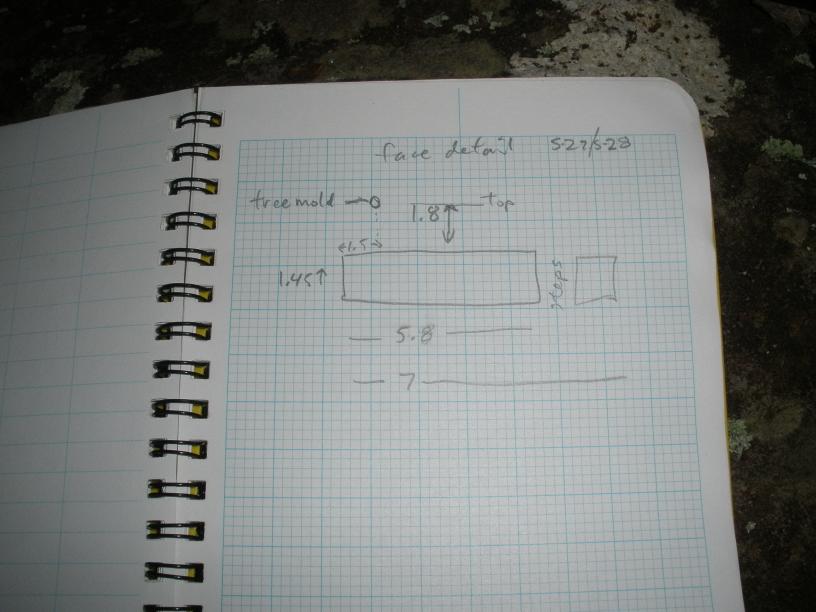 face detail 5-27/5-28
treemold
1.8 top
1.5
1.45
steps
5.8
7